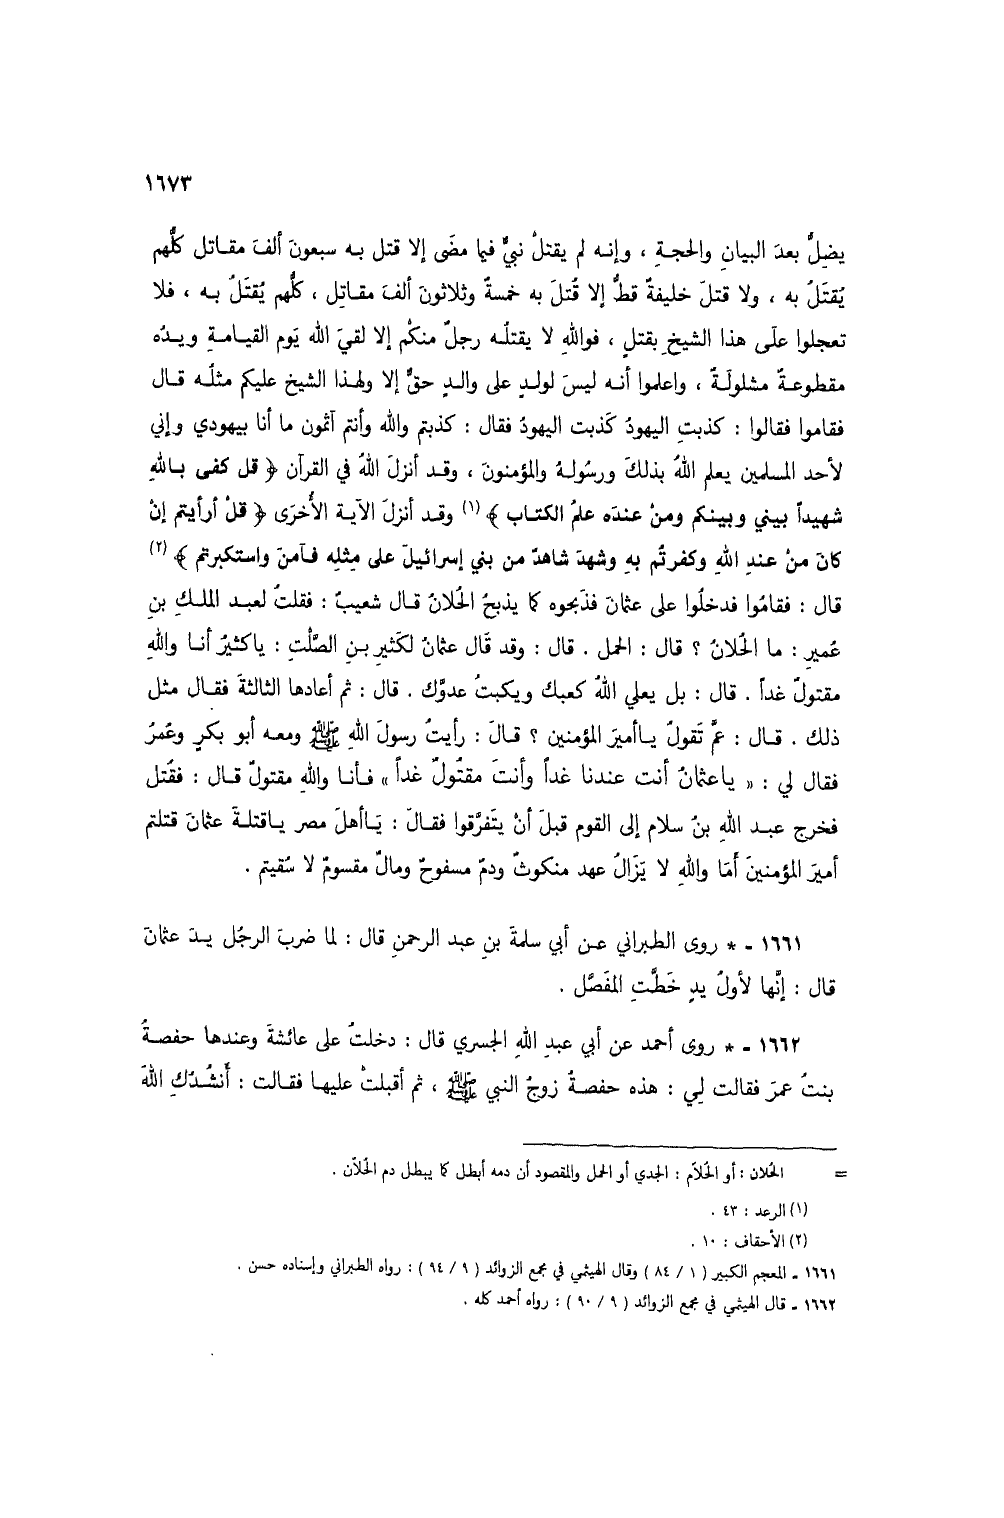 ١٦٧٣
يضلُّ بعدَ البيانِ والحجةِ ، وإنه لم يقتلْ نبيٌّ فيما مضَى إلا قتل به سبعونَ ألفَ مقاتل كلُّهم
يُقتَلُ به ، ولا قتلَ خليفةٌ قطُّ إلا قُتلَ به خمسةٌ وثلاثونَ ألفَ مقاتِل ، كلُّهم يُقتَلُ به ، فلا
تعجلوا علَى هذا الشيخِ بقتلٍ ، فواللهِ لا يقتلُه رجلٌ منكُم إلا لقيَ الله يَوم القيامةِ ويدُه
مقطوعةٌ مشلولَةٌ ، واعلموا أنه ليسَ لولدٍ على والدٍ حقٌّ إلا ولهذا الشيخ عليكم مثلُه قال
فقاموا فقالوا : كذبتِ اليهودُ كَذبت اليهودُ فقال : كذبتم والله وأنتم آثمون ما أنا بيهودي وإني
لأحد المسلمين يعلم اللهُ بذلكَ ورسُوله والمؤمنونَ ، وقد أنزلَ اللهُ في القرآن ﴿ قل كفى باللهِ
شهيداً بيني وبينكم ومنْ عندَه علمُ الكتاب ﴾ (١) وقد أنزلَ الآية الأُخرَى ﴿ قلْ أرأيتم إنْ
كانَ منْ عندِ اللهِ وكفرتُم بهِ وشهدَ شاهدٌ من بني إسرائيلَ على مثلِه فآمنَ واستكبرتم ﴾ (٢)
قال : فقامُوا فدخلُوا على عثمانَ فذَبحوه كما يذبحُ الحُلانُ قال شعيبٌ : فقلتُ لعبد الملك بنِ
عُميرٍ : ما الحُلانُ ؟ قال : الحمل . قال : وقد قَال عثمانُ لكَثيرِ بنِ الصَّلْتِ : ياكثيرُ أنا واللهِ
مقتولٌ غداً . قال : بل يعلي اللهُ كعبك ويكبتُ عدوَّك . قال : ثم أعادها الثالثةَ فقال مثل
ذلك . قال : عمَّ تَقولُ ياأميرَ المؤمنين ؟ قالَ : رأيتُ رسولَ اللهِ ﷺ ومعه أبو بكرٍ وعُمرُ
فقال لي : « ياعثمانُ أنت عندنا غداً وأنتَ مقتُولٌ غداً » فأنا واللهِ مقتولٌ قال : فقُتل
فخرج عبد اللهِ بنُ سلام إلى القوم قبلَ أنْ يتَفرَّقوا فقالَ : يَاأهلَ مصر ياقتلةَ عثمانَ قتلتم
أميرَ المؤمنينَ أَمَا واللهِ لا يَزَالُ عهد منكوثٌ ودمٌ مسفوحٌ ومالٌ مقسومٌ لا سُقيتم .
١٦٦١ - * روى الطبراني عن أبي سلمةَ بنِ عبد الرحمنِ قال : لما ضربَ الرجُل يدَ عثمانَ
قال : إنَّها لأولُ يدٍ خَطَّتِ المفَصَّل .
١٦٦٢ - * روى أحمد عن أبي عبدِ اللهِ الجسري قال : دخلتُ على عائشةَ وعندها حفصةُ
بنتُ عمرَ فقالت لِي : هذه حفصةُ زوجُ النبي ﷺ ، ثم أقبلتْ عليها فقالت : أَنشُدُكِ اللهَ
= الحُلان : أو الحُلاَم : الجدي أو الحمل والمقصود أن دمه أبطل كما يبطل دم الحُلاَن .
(١) الرعد : ٤٣ .
(٢) الأحقاف : ١٠ .
١٦٦١ - المعجم الكبير ( ١ / ٨٤ ) وقال الهيثمي في مجمع الزوائد ( ٩ / ٩٤ ) : رواه الطبراني وإسناده حسن .
١٦٦٢ - قال الهيثمي في مجمع الزوائد ( ٩ / ٩٠ ) : رواه أحمد كله .